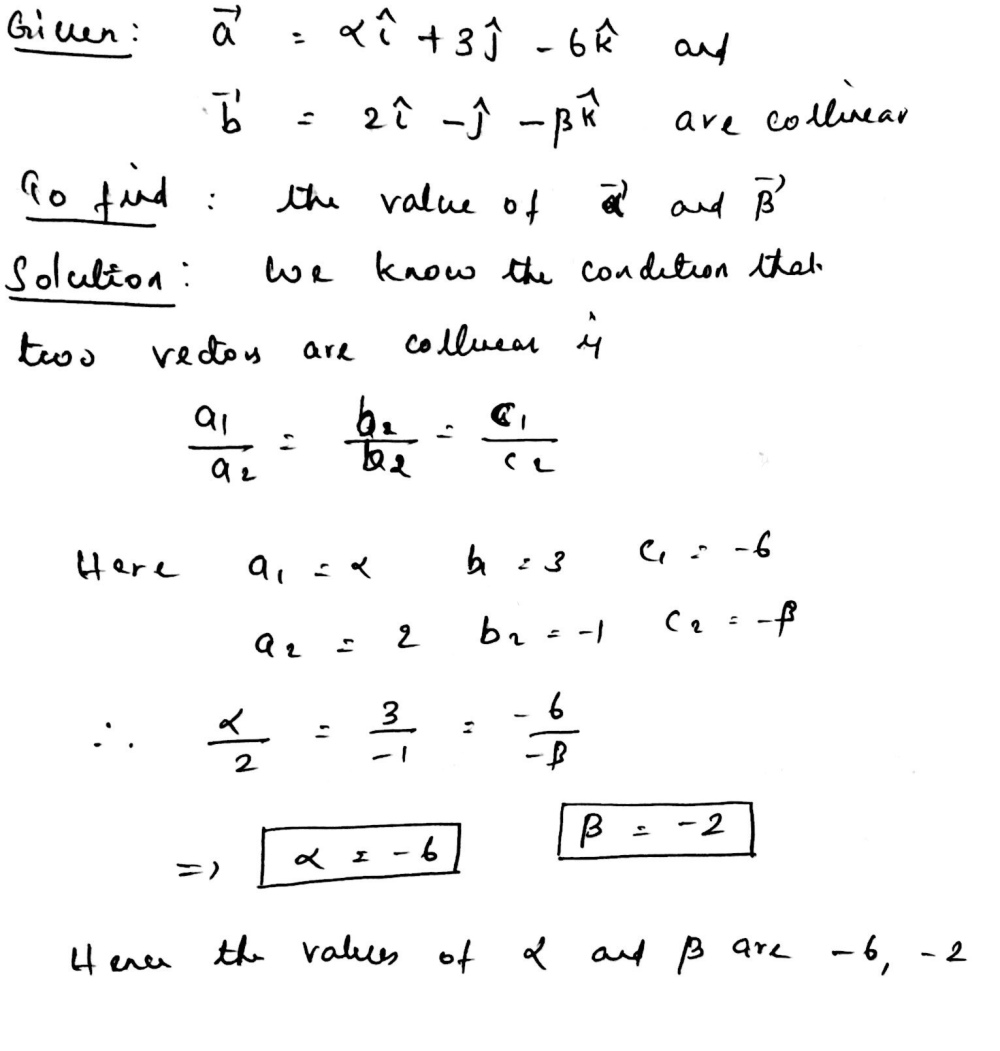 Given: a⃗ = αî + 3ĵ - 6k̂ and
b⃗ = 2î - ĵ - βk̂ are collinear
To find : the value of α⃗ and β⃗
Solution: We know the condition that
two vectors are collinear if
a₁/a₂ = b₂/b₂ = c₁/c₂
Here a₁ = α b = 3 c₁ = -6
a₂ = 2 b₂ = -1 c₂ = -β
∴ α/2 = 3/-1 = -6/-β
=> α = -6 β = -2
Hence the values of α and β are -6, -2